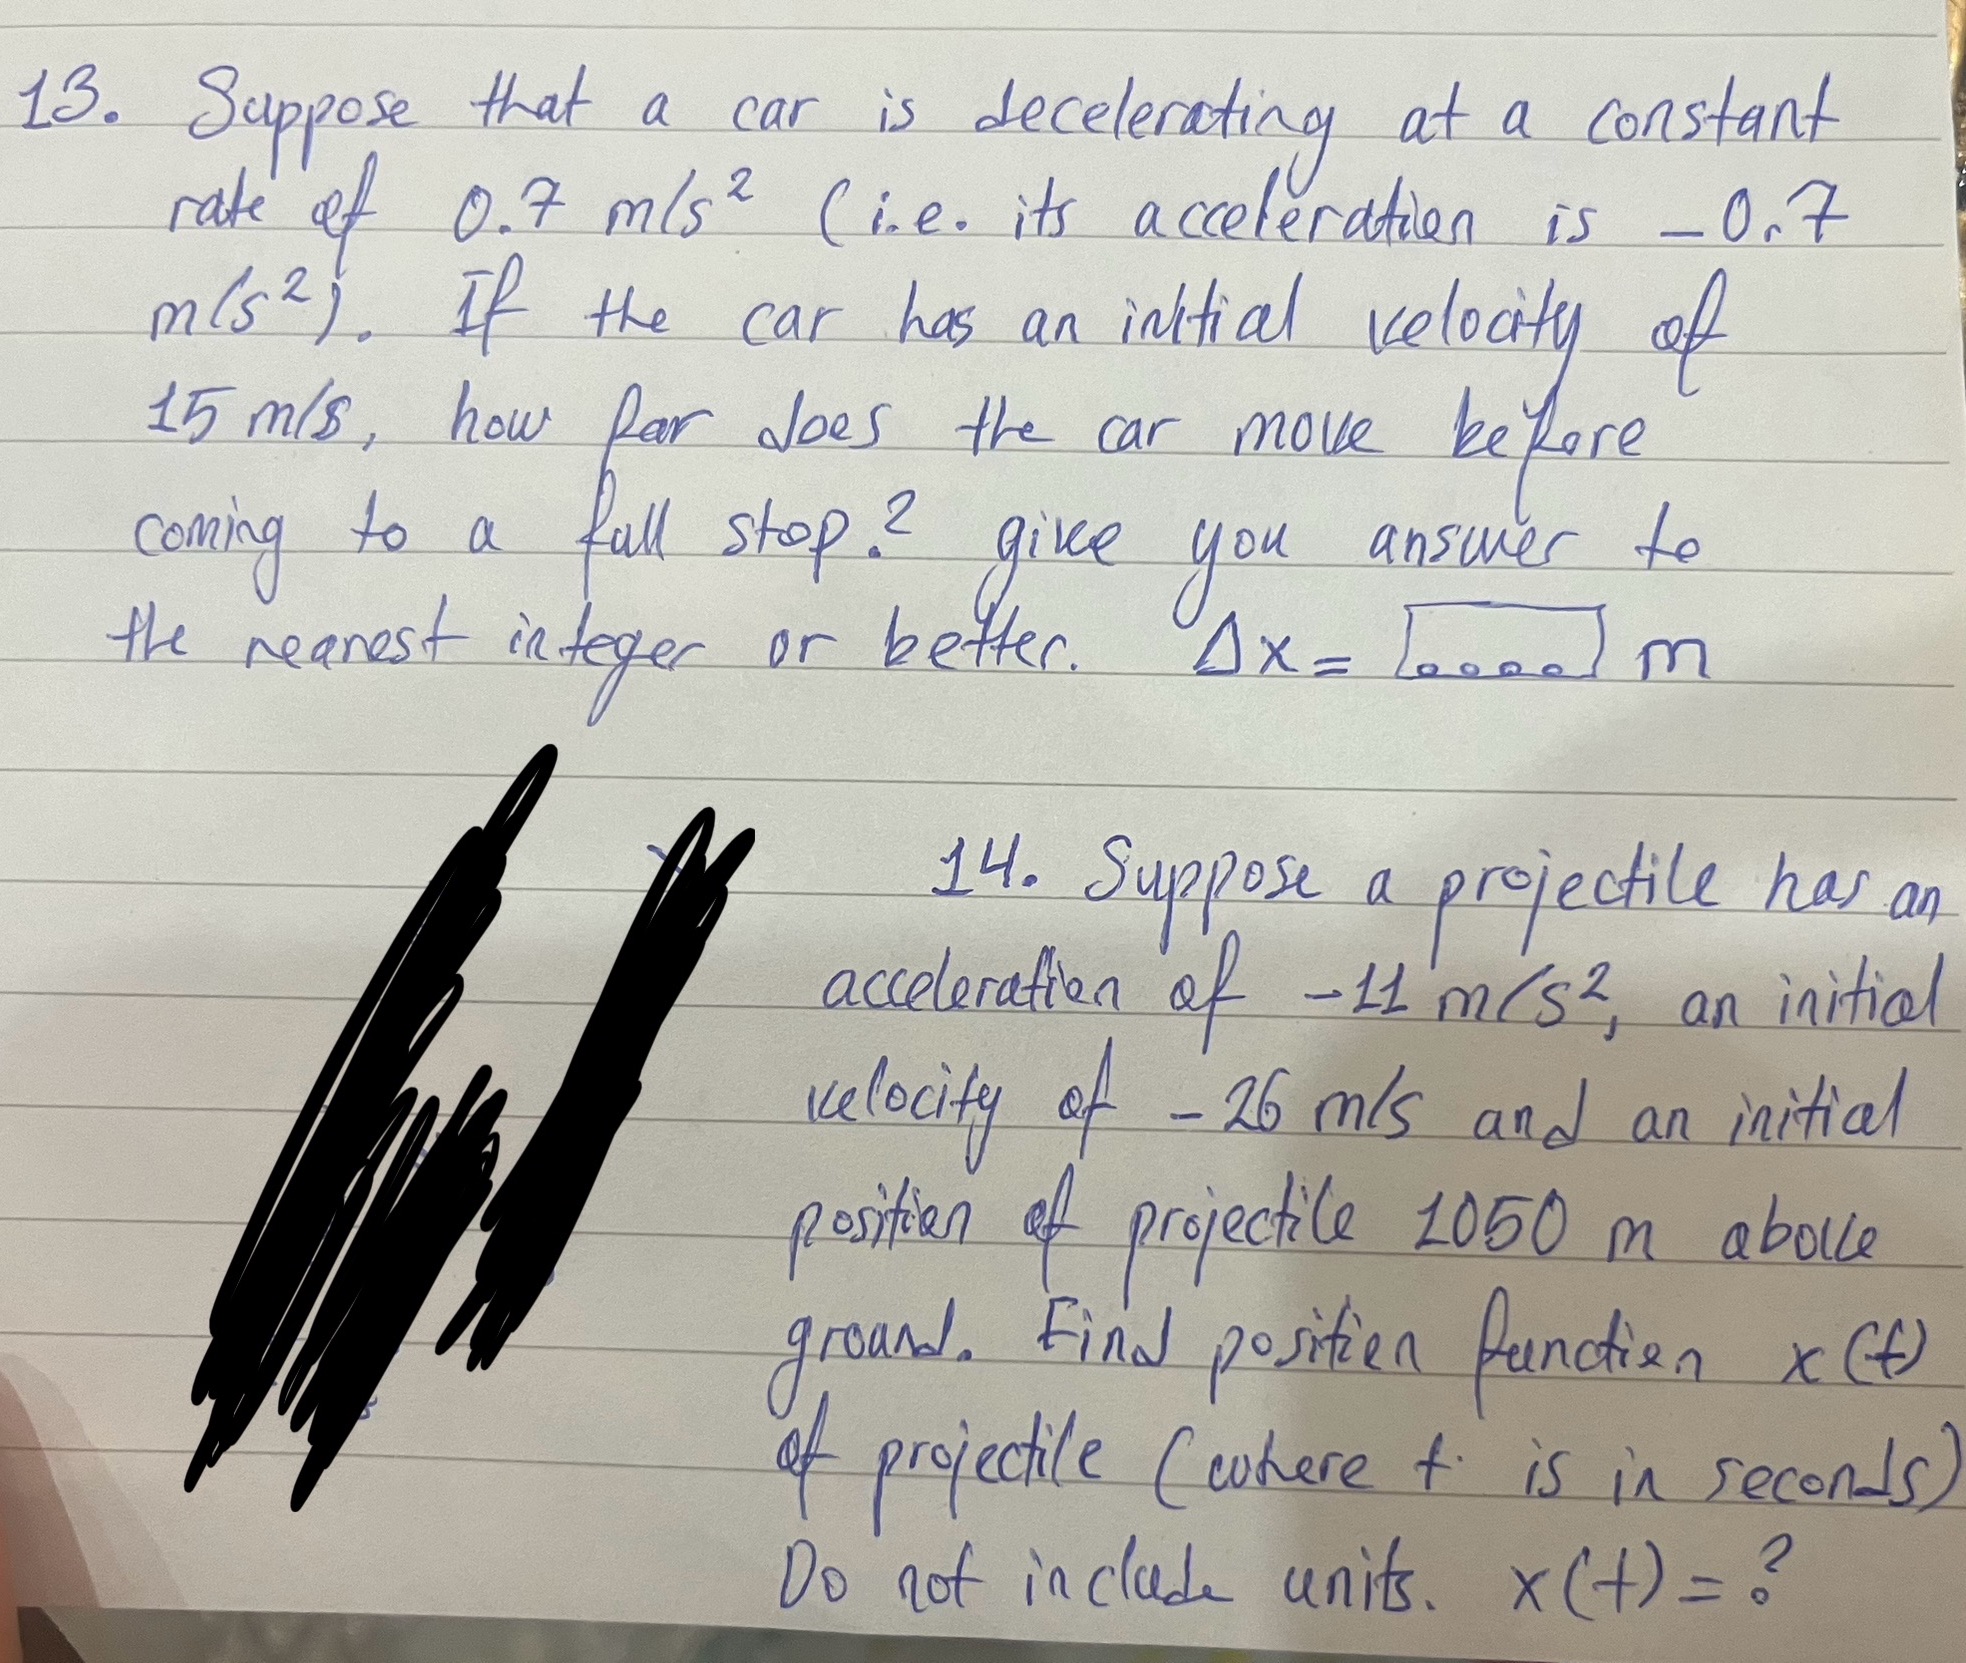 13. Suppose that a car is decelerating at a constant
rate of 0.7 m/s² (i.e. its acceleration is -0.7
m/s²). If the car has an initial velocity of
15 m/s, how far does the car move before
coming to a full stop? give you answer to
the nearest integer or better. Δx = m
14. Suppose a projectile has an
acceleration of -11 m/s², an initial
velocity of -26 m/s and an initial
position of projectile 1050 m above
ground. Find position function x(t)
of projectile (where t is in seconds)
Do not include units. x(t) = ?